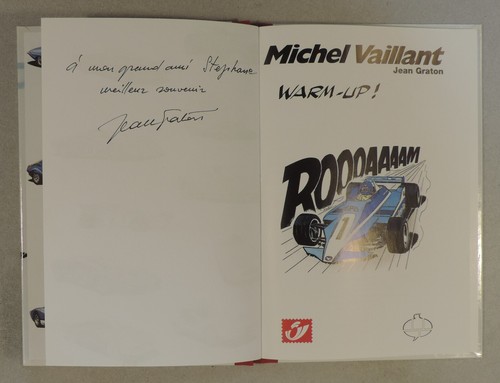 à mon grand ami Stephane
meilleur souvenir
Jean Graton
Michel Vaillant
Jean Graton
WARM-UP!
ROOOAAAAM
1